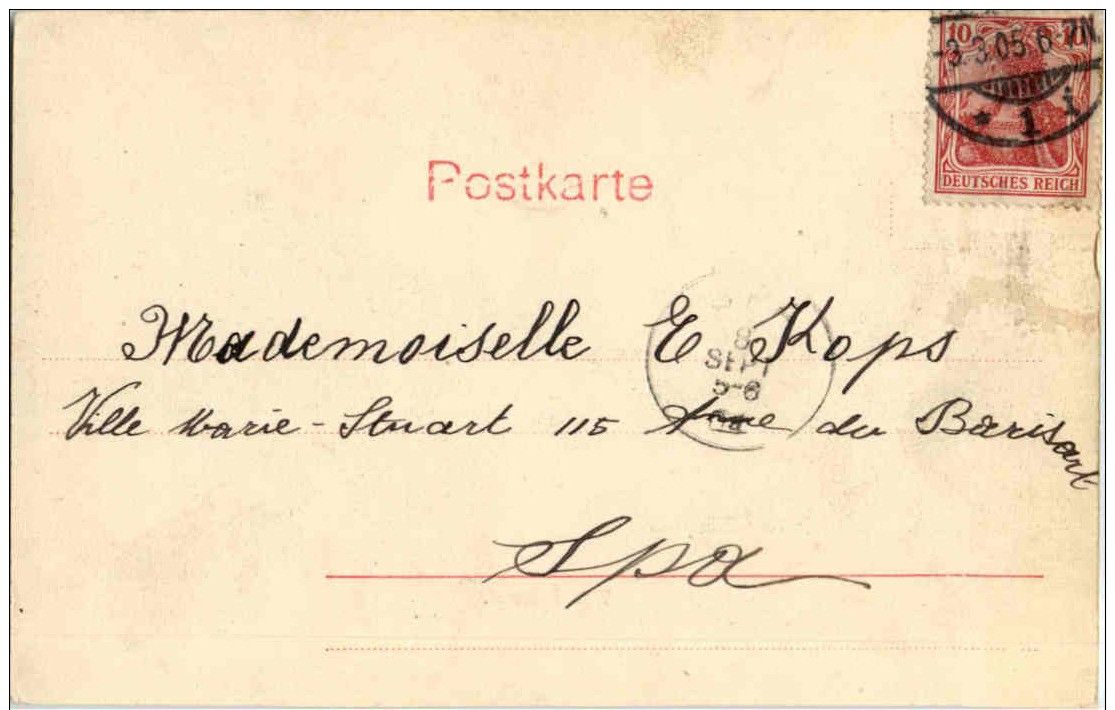 10
-3.3.05.6-7N.
* 1 i
DEUTSCHES REICH
Postkarte
Mademoiselle E Kops
8
SEPT
5-6
Ville Marie-Stuart 115 du Barisart
Spa